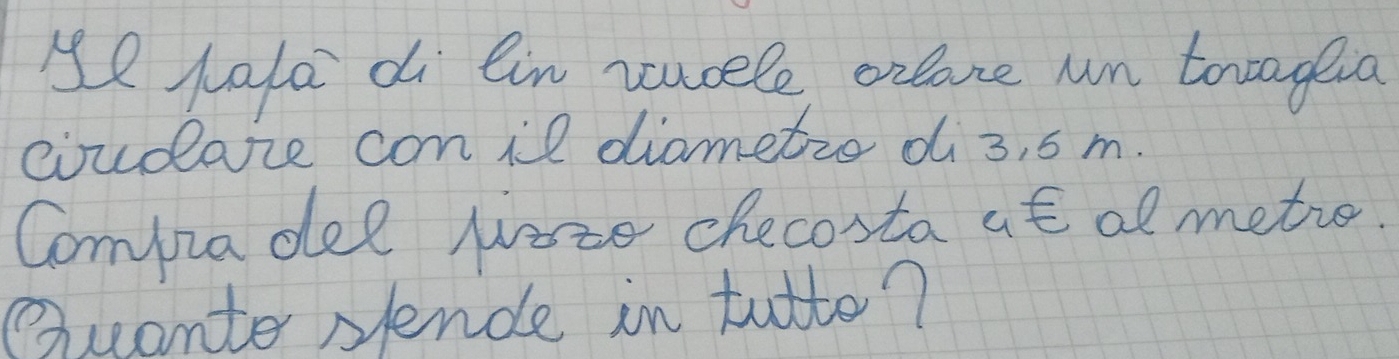 Il papà di lin vuole orlare un tovaglia
circolare con il diametro di 3,5 m.
Compra del pizzo checosta 4€ al metro.
Quanto spende in tutto?